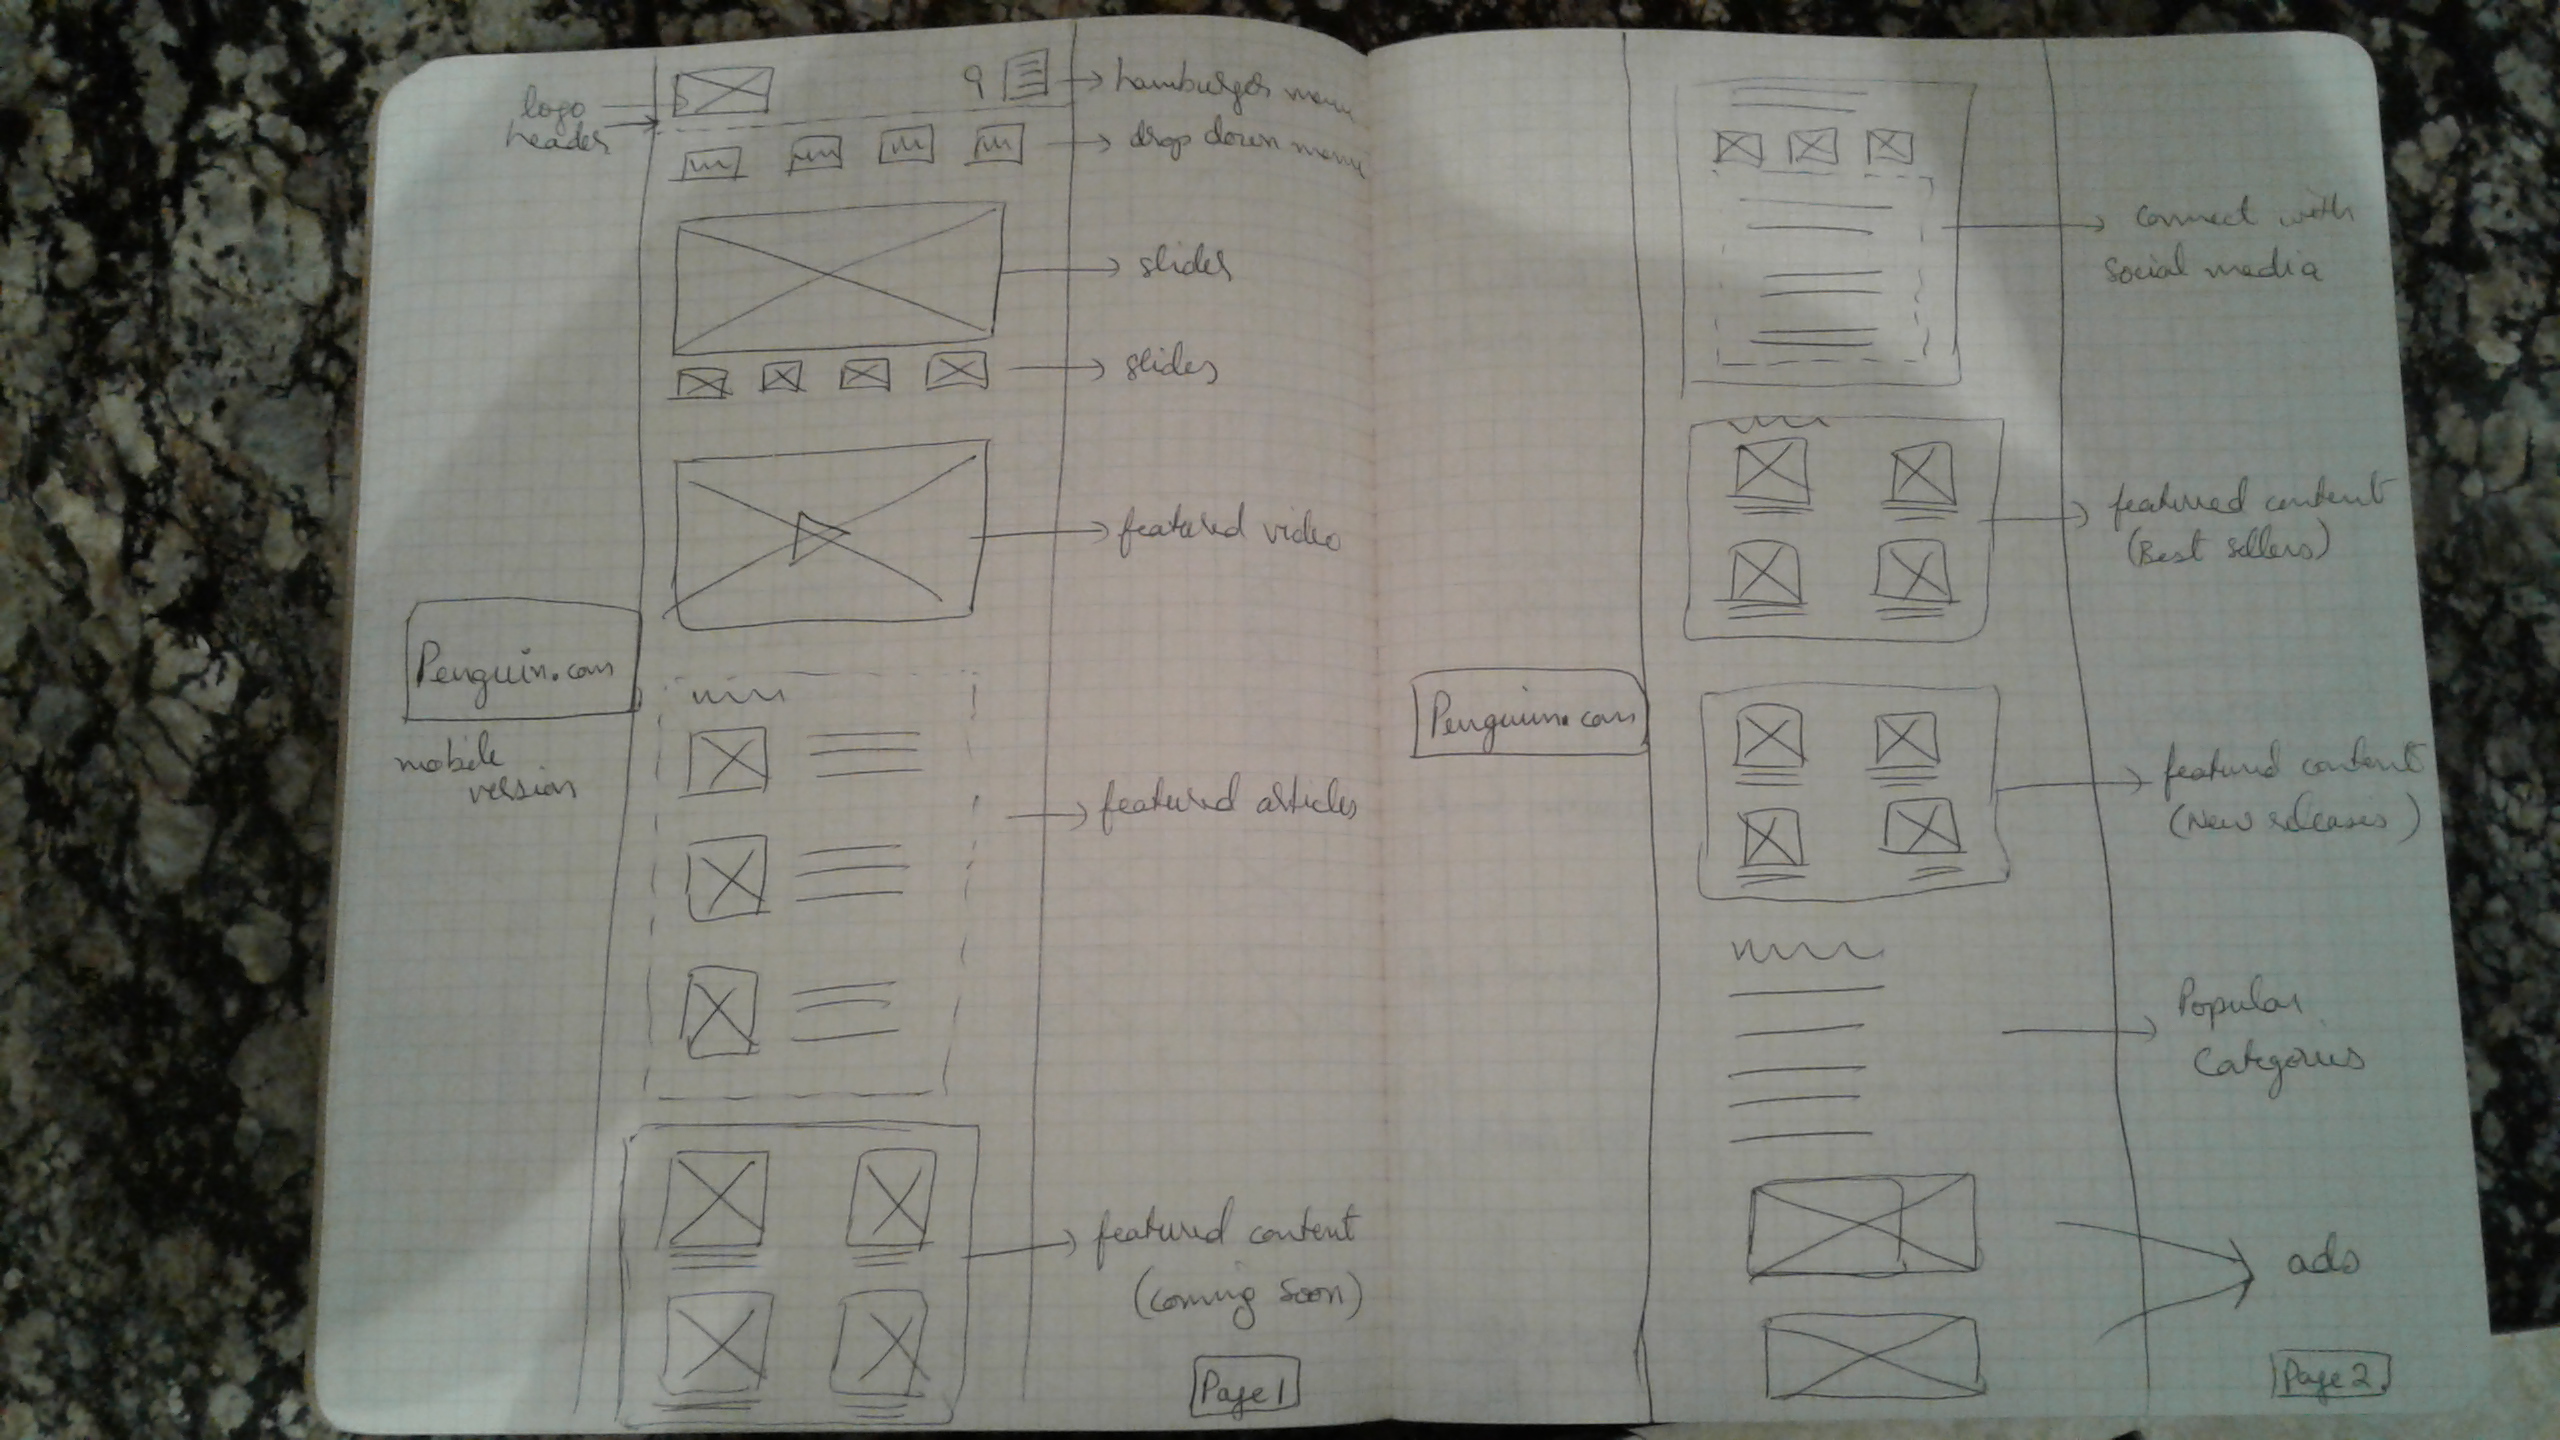 logo
header
hamburger menu
drop down menu
slider
slides
Penguin.com
mobile
version
featured video
featured articles
featured content
(coming soon)
Page 1
Penguin.com
connect with
social media
featured content
(Best sellers)
featured content
(New releases)
Popular
Categories
ads
Page 2